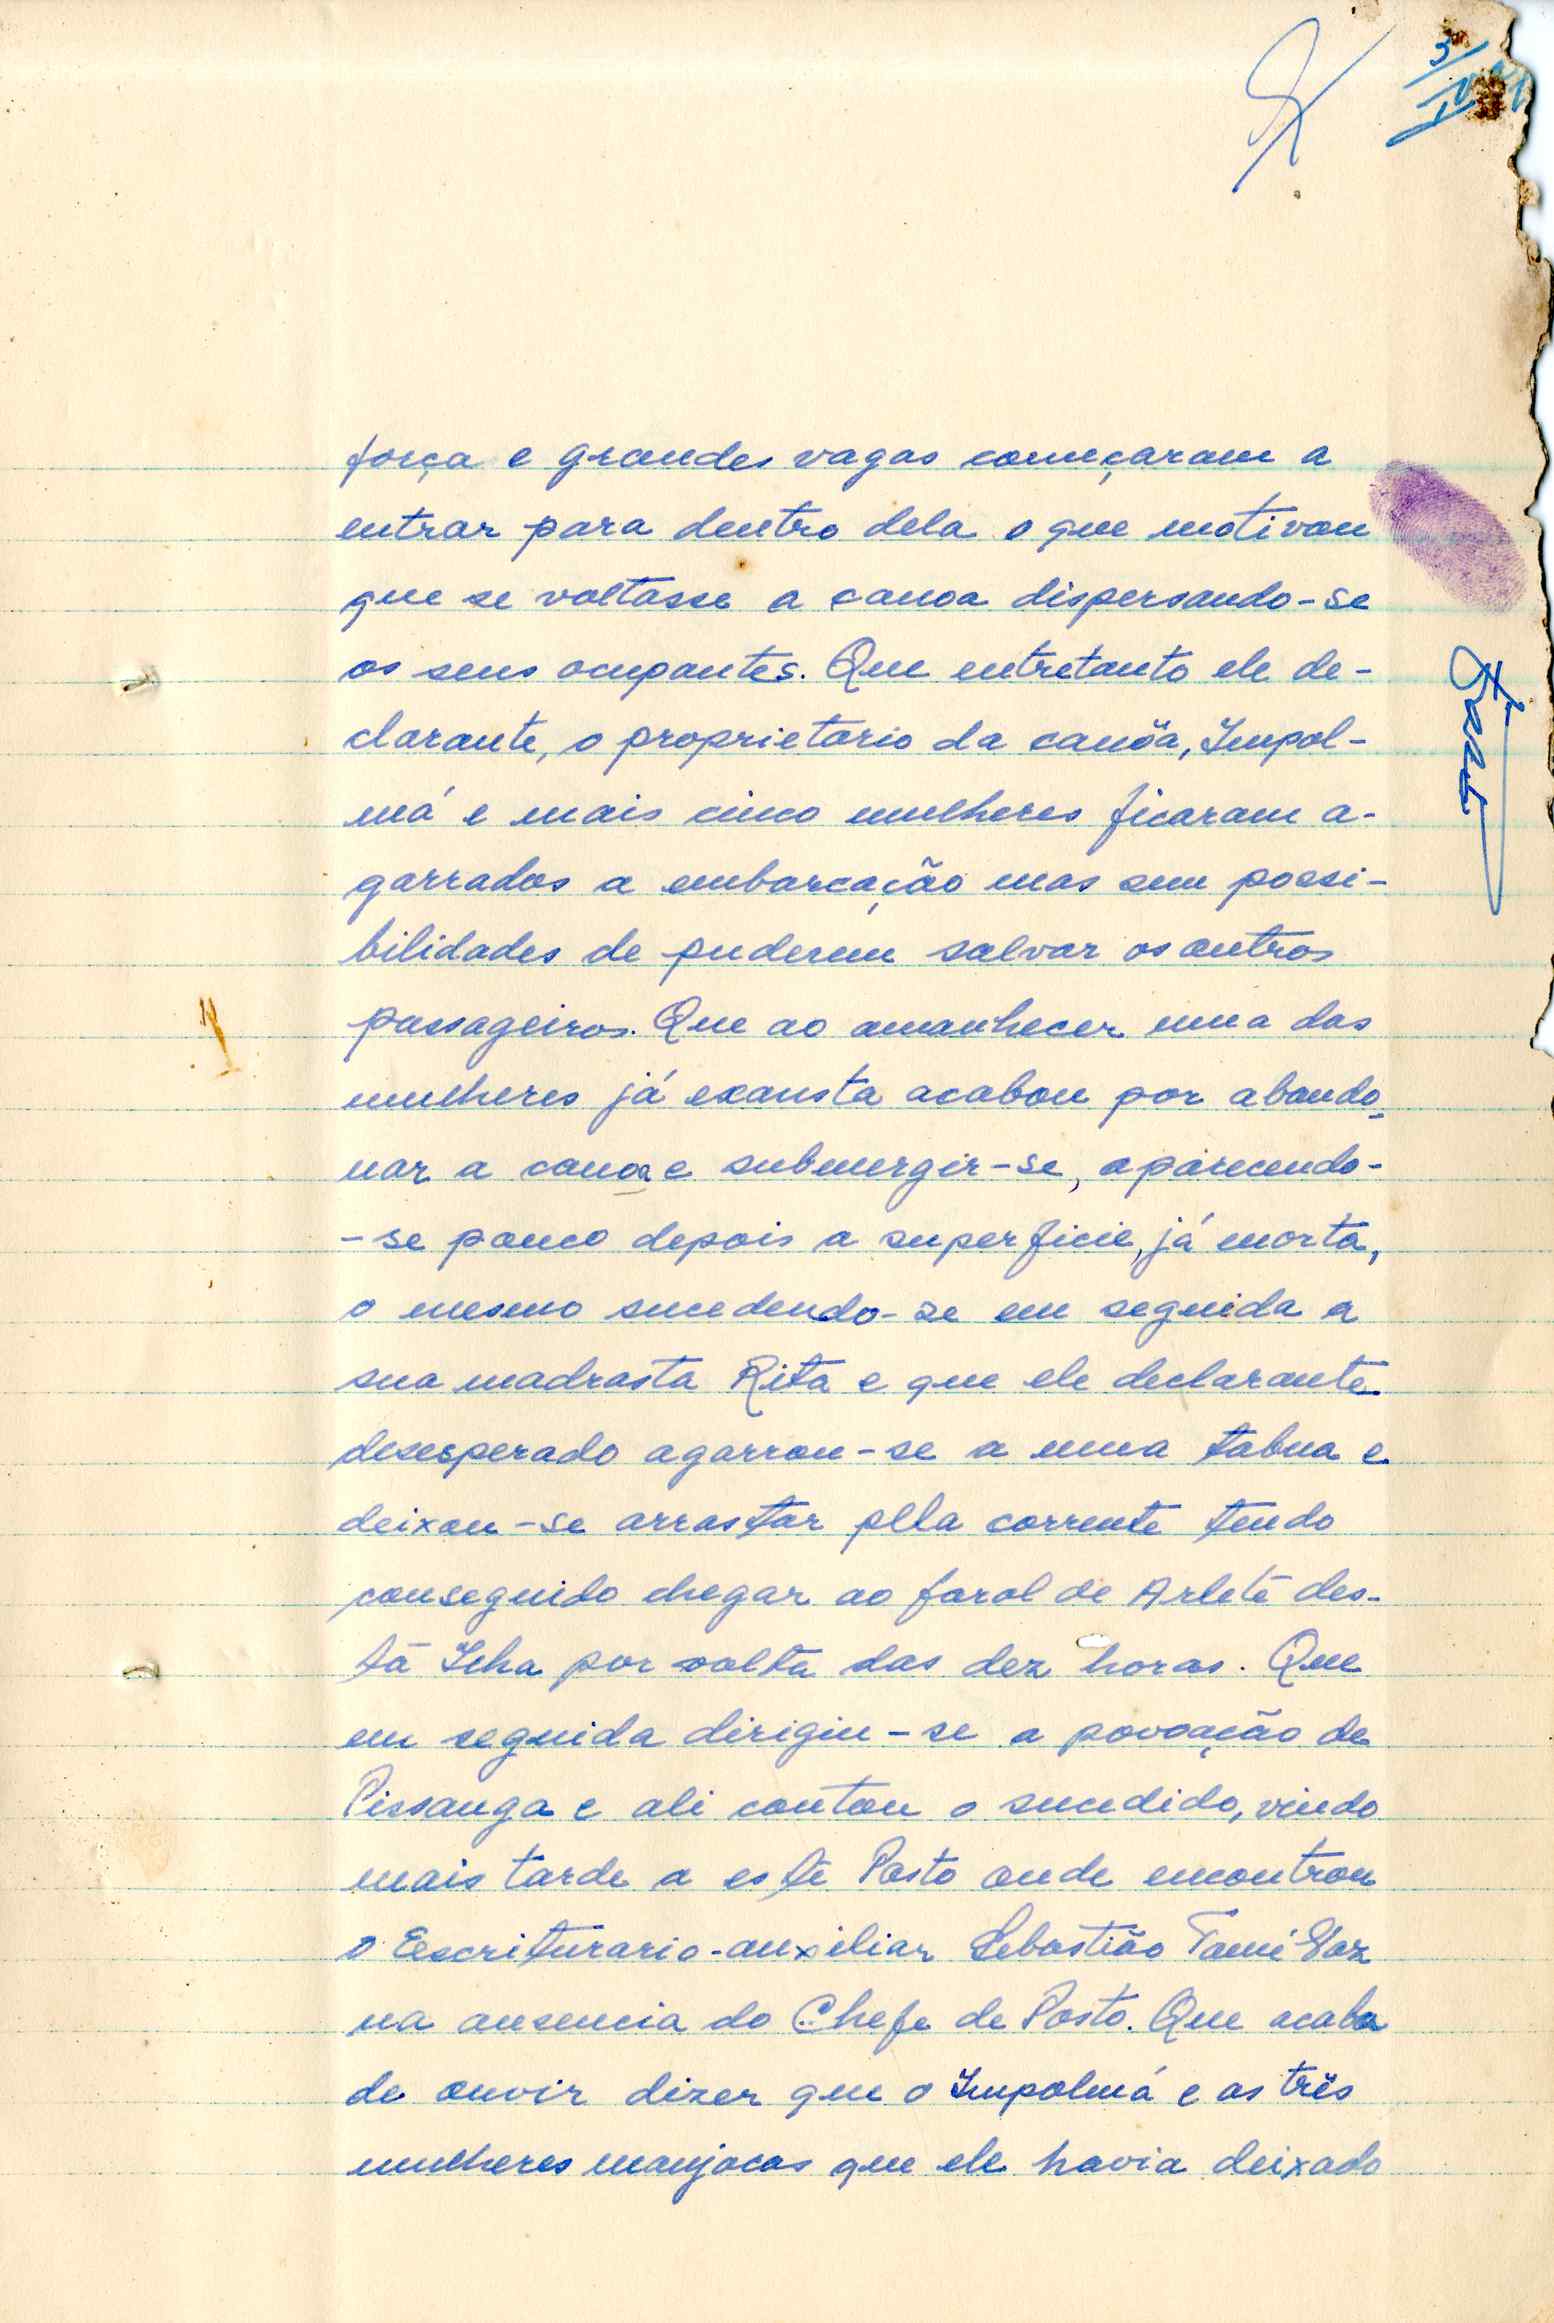 força e grandes vagas começaram a
entrar para dentro dela o que motivou
que se voltasse a canoa dispersando-se
os seus ocupantes. Que entretanto ele de-
clarante, o proprietario da canôa, Impol-
má e mais cinco mulheres ficaram a-
garrados a embarcação mas sem possi-
bilidades de puderem salvar os outros
passageiros. Que ao amanhecer uma das
mulheres já exausta acabou por abando-
nar a canoa e submergir-se, aparecendo-
-se pouco depois a superficie, já morta,
o mesmo sucedendo-se em seguida a
sua madrasta Rita e que ele declarante
desesperado agarrou-se a uma tabua e
deixou-se arrastar pela corrente tendo
conseguido chegar ao farol de Arlete des-
ta Ilha por volta das dez horas. Que
em seguida dirigiu-se a povoação de
Pissanga e ali contou o sucedido, vindo
mais tarde a este Posto onde encontrou
o Escriturario-auxiliar Sebastião Tomé Vaz
na ausencia do Chefe de Posto. Que acaba
de ouvir dizer que o Impolmá e as três
mulheres manjacas que ele havia deixado